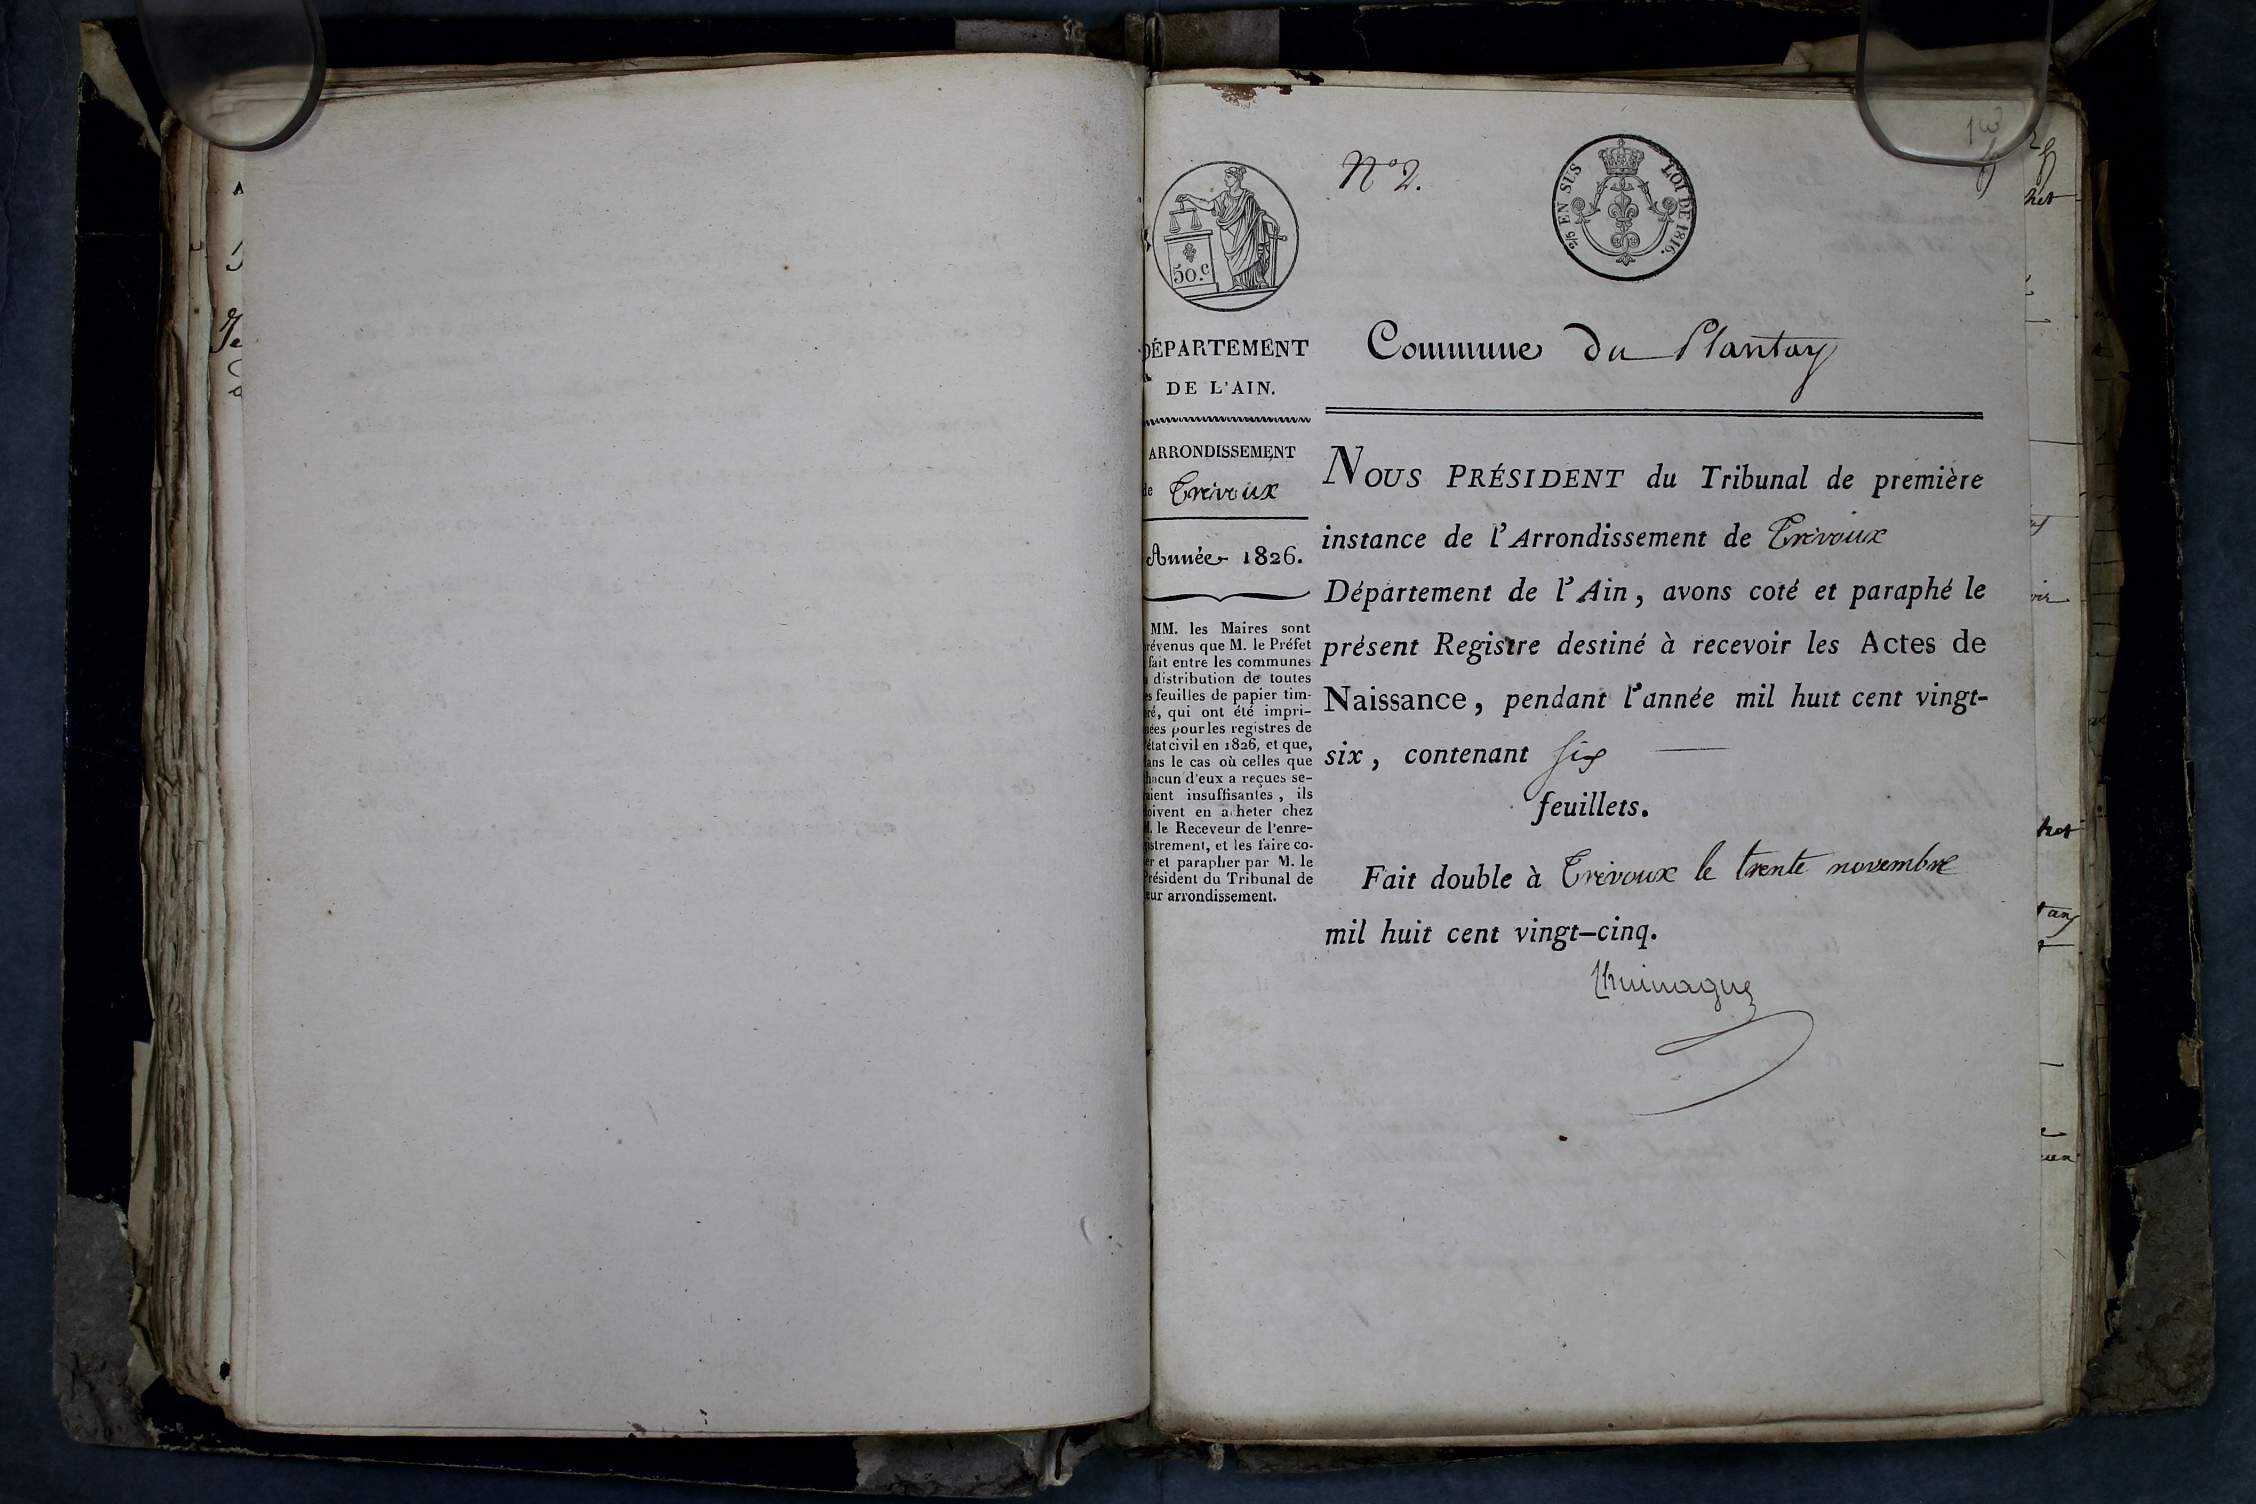 N.o 2.
50.c
2/5 EN SUS
LOI DE 1816.
DÉPARTEMENT
DE L'AIN.
ARRONDISSEMENT
de Trévoux
Année 1826.
MM. les Maires sont
prévenus que M. le Préfet
fait entre les communes
distribution de toutes
feuilles de papier tim-
bré, qui ont été impri-
mées pour les registres de
l'état civil en 1826, et que,
dans le cas où celles que
chacun d'eux a reçues se-
raient insuffisantes, ils
doivent en acheter chez
M. le Receveur de l'enre-
gistrement, et les faire co-
ter et parapher par M. le
Président du Tribunal de
leur arrondissement.
Commune du Plantay
NOUS PRÉSIDENT du Tribunal de première
instance de l'Arrondissement de Trévoux
Département de l'Ain, avons coté et paraphé le
présent Registre destiné à recevoir les Actes de
Naissance, pendant l'année mil huit cent vingt-
six, contenant six
feuillets.
Fait double à Trévoux le trente novembre
mil huit cent vingt-cinq.